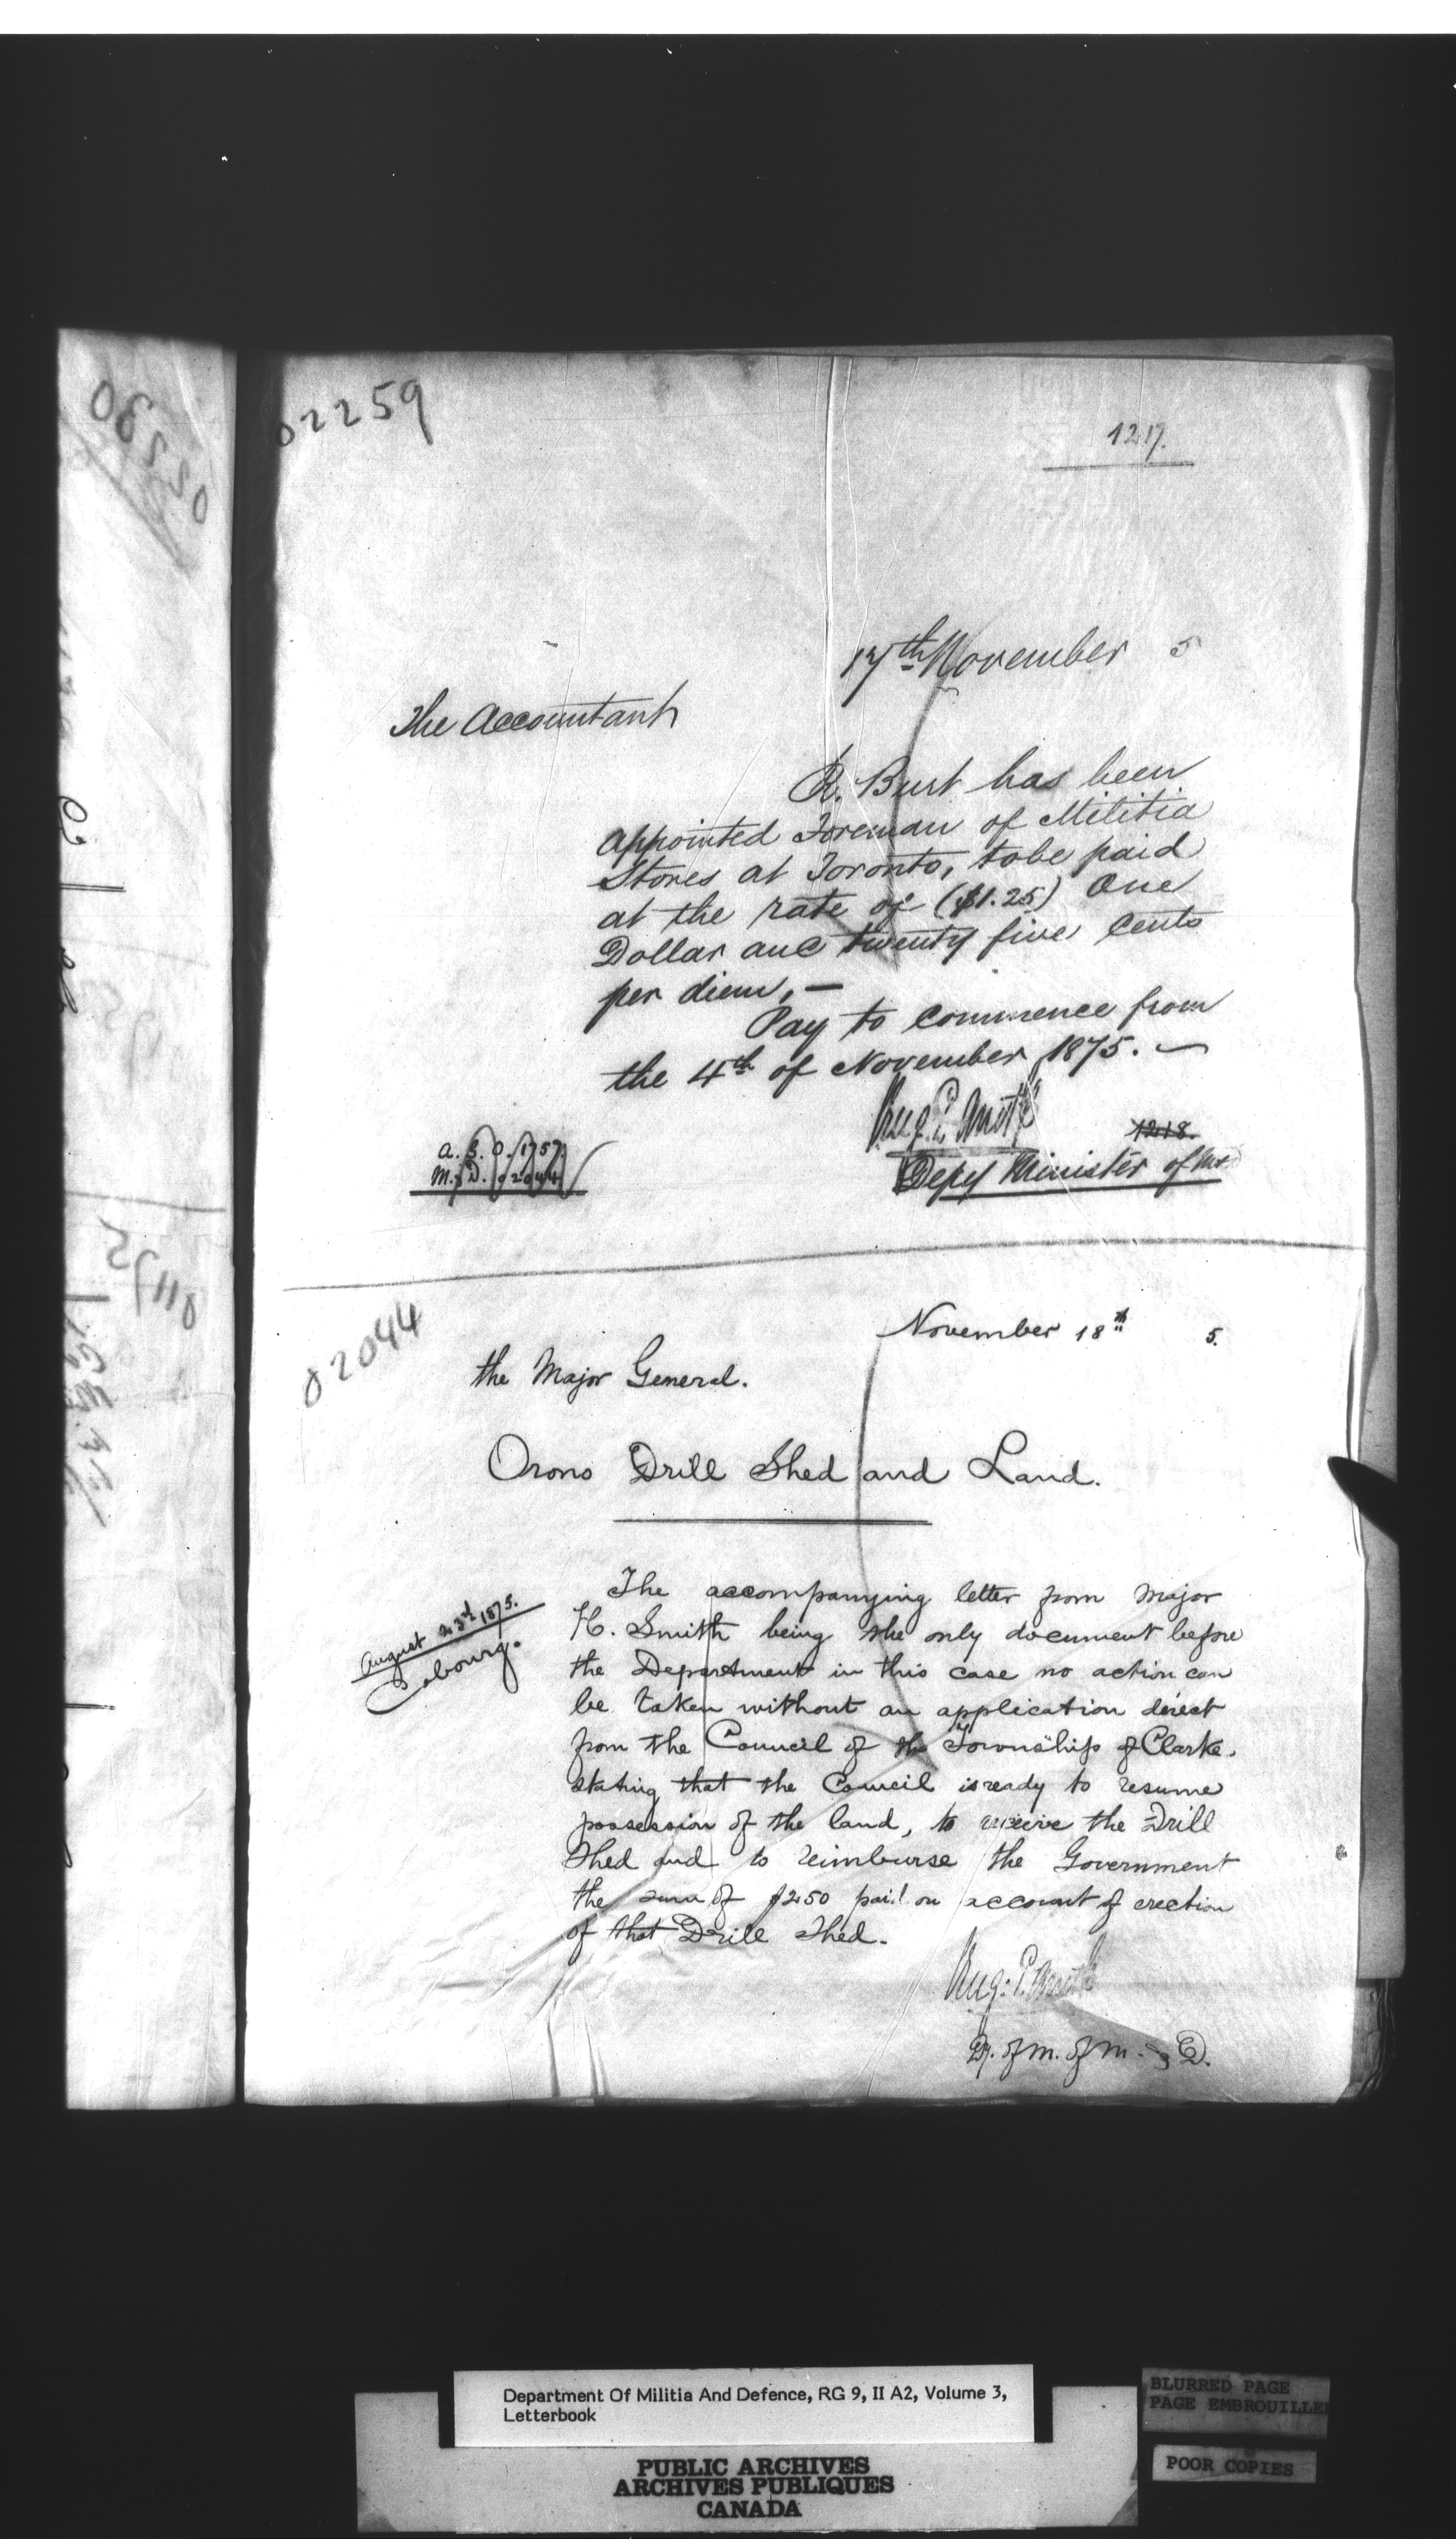 02259
1217.
17th November 5
The Accountant
R. Burt has been
appointed Foreman of Militia
Stores at Toronto, to be paid
at the rate of ($1.25) One
Dollar and twenty five Cents
per diem, —
Pay to commence from
the 4th of November 1875. —
1218.
Depy Minister of M&D
A. S. O. 1757.
M. & D. 02044
02044
November 18th 5.
the Major General.
Orono Drill Shed and Land.
August 23d 1875.
Cobourg.
The accompanying letter from Major
H. Smith being the only document before
the Department in this case no action can
be taken without an application direct
from the Council of the Township of Clarke,
stating that the Council is ready to resume
possession of the land, to receive the Drill
Shed and to reimburse the Government
the sum of $250 paid on account of erection
of that Drill Shed.
Dy. of M. of M. & D.
02230
Department Of Militia And Defence, RG 9, II A2, Volume 3,
Letterbook
PUBLIC ARCHIVES
ARCHIVES PUBLIQUES
CANADA
BLURRED PAGE
PAGE EMBROUILLE
POOR COPIES